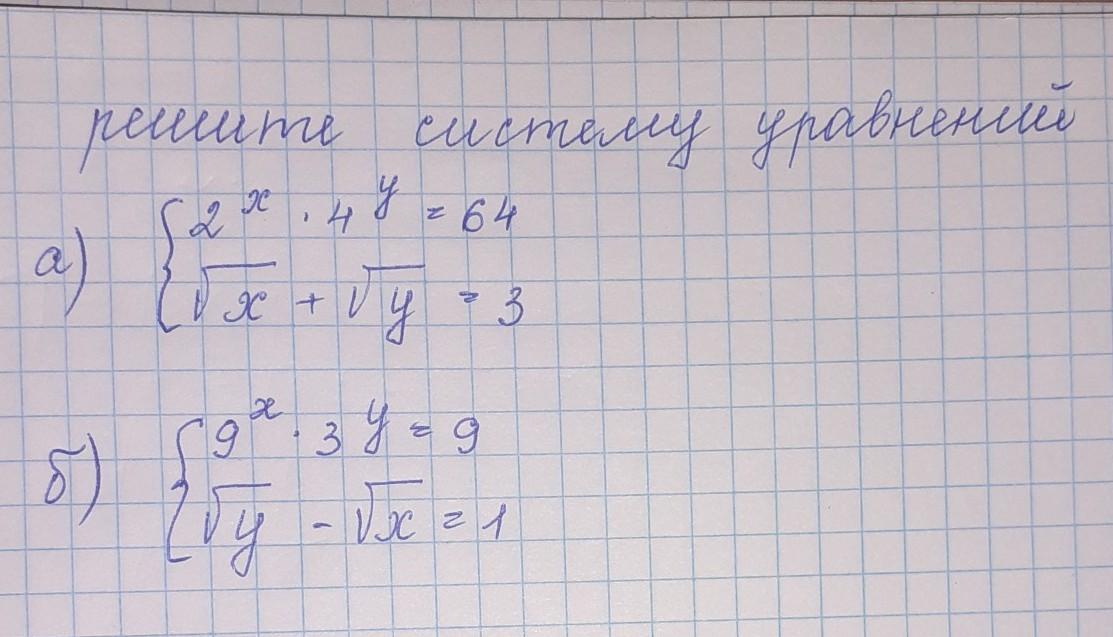 решите систему уравнений
а) { 2^x · 4^y = 64
√x + √y = 3
б) { 9^x · 3^y = 9
√y - √x = 1